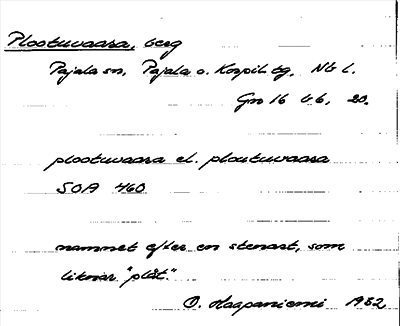 Plootuvaara, berg
Pajala sn, Pajala o. Korpil. tg, Nb l.
Gn 16 b 6, 20.
plootuvaara el. ploutuvaara
SOA 460
namnet efter en stenart, som
liknar "plåt."
O. Haapaniemi 1932